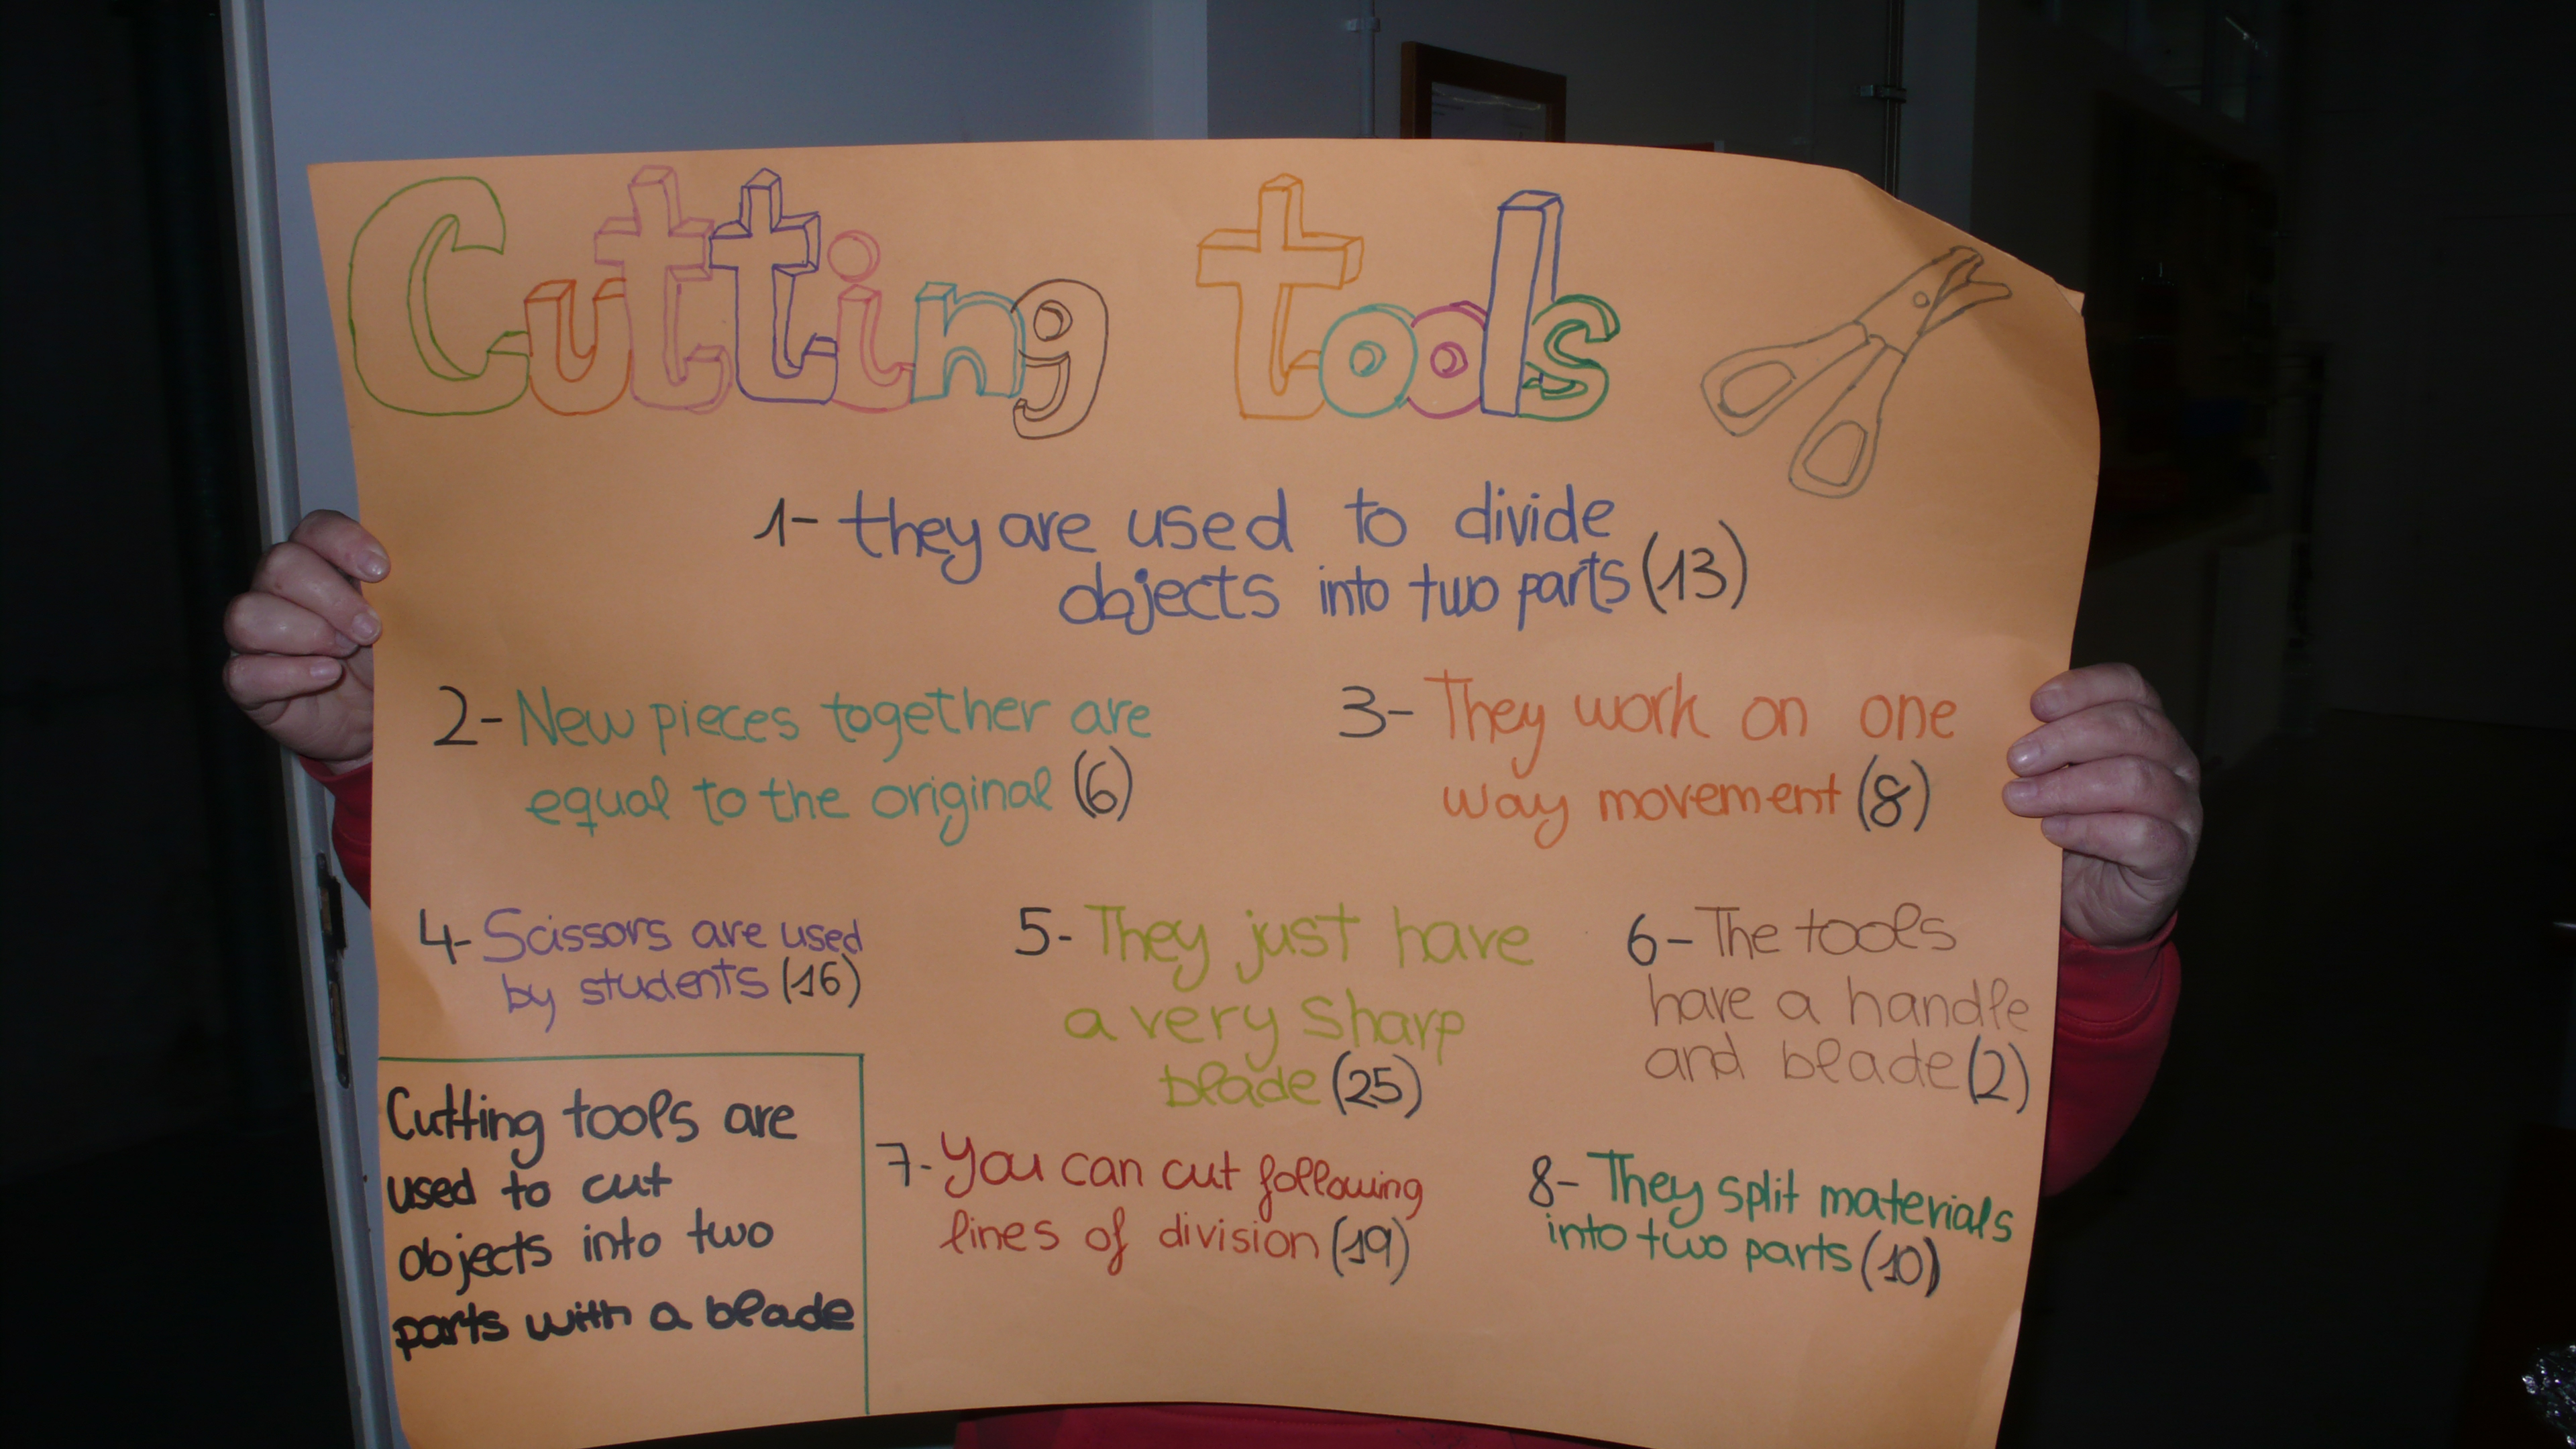 Cutting tools
1- they are used to divide
objects into two parts (13)
2- New pieces together are
equal to the original (6)
3- They work on one
way movement (8)
4- Scissors are used
by students (16)
5- They just have
a very sharp
blade (25)
6- The tools
have a handle
and blade (2)
Cutting tools are
used to cut
objects into two
parts with a blade
7- You can cut following
lines of division (19)
8- They split materials
into two parts (10)